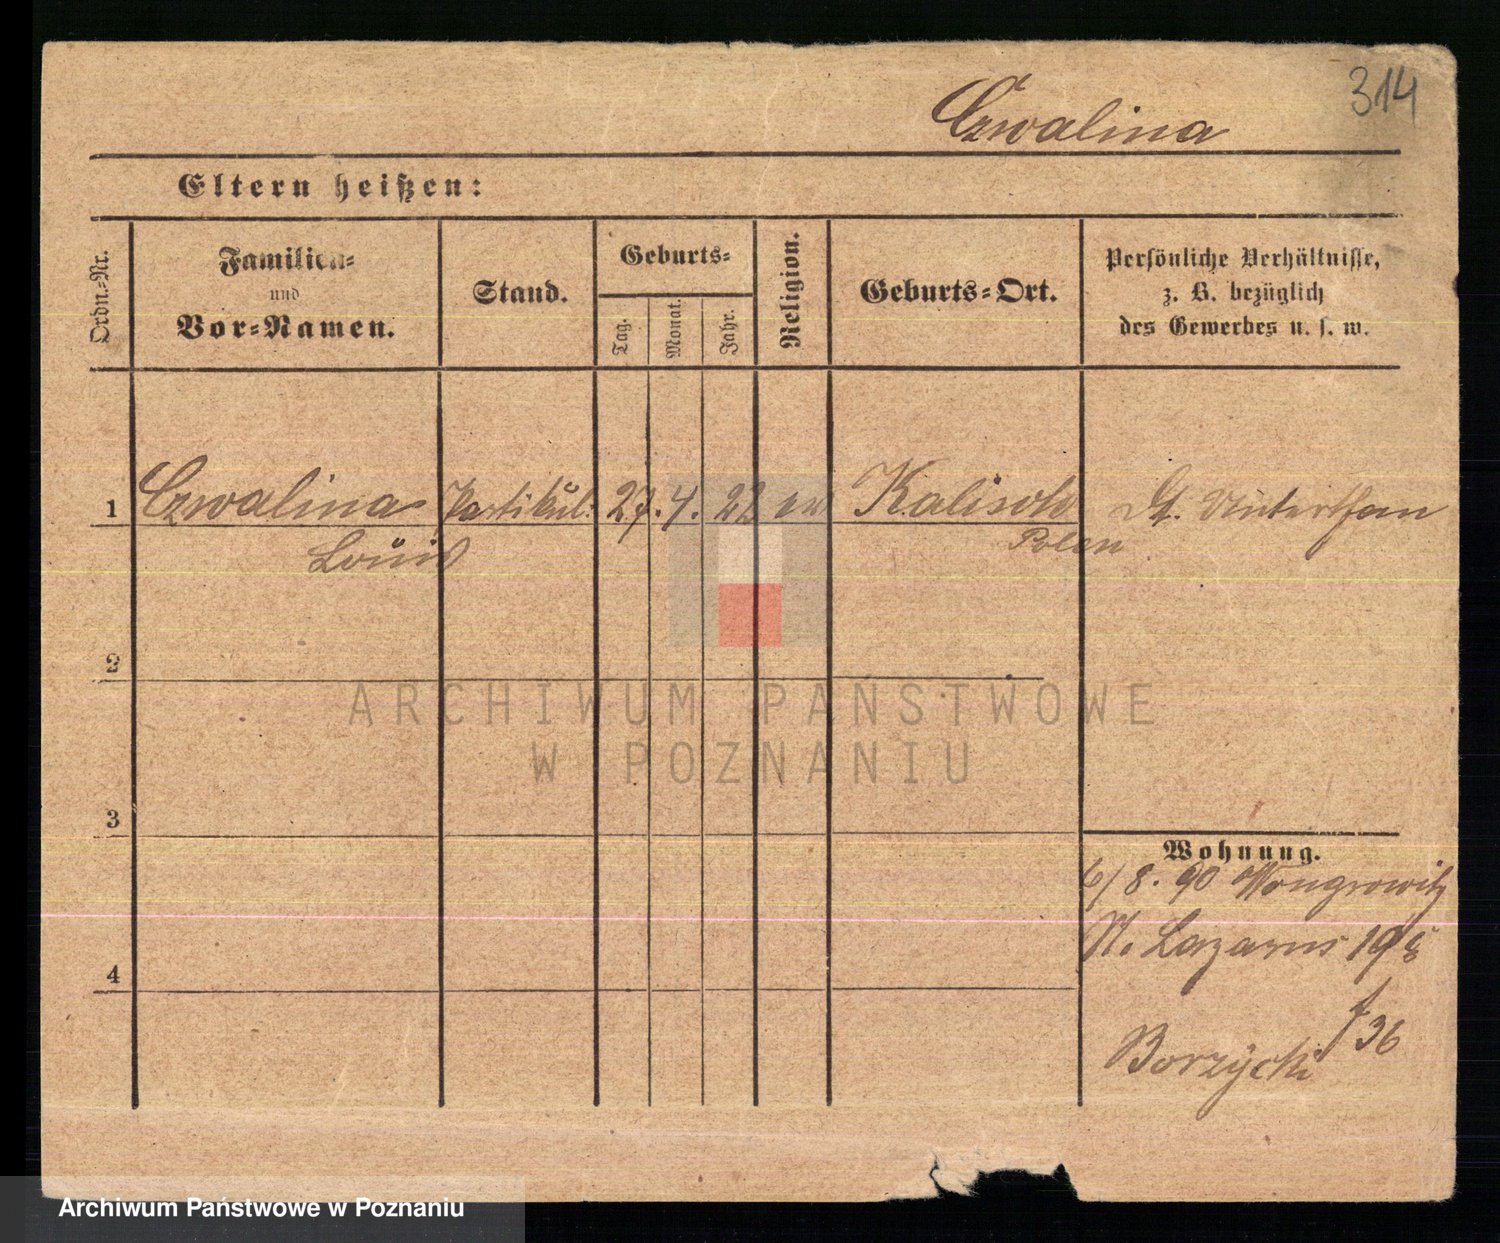 314
Czwalina
Eltern heißen:
Ordn.-Nr.
Familien-
und
Vor-Namen.
Stand.
Geburts-
Tag.
Monat.
Jahr.
Religion.
Geburts-Ort.
Persönliche Verhältnisse,
z. B. bezüglich
des Gewerbes u. s. w.
1 Czwalina Partikul: 27. 4. 22 ev Kalisch Pr. Unterthan
Louis Polen
2
ARCHIWUM PAŃSTWOWE
W POZNANIU
3
Wohnung.
6/8. 90 Wongrowitz
St. Lazarus 19
4
f 36
Borzycki
Archiwum Państwowe w Poznaniu